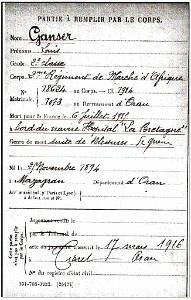 PARTIE À REMPLIR PAR LE CORPS.
Nom Ganser
Prénoms Louis
Grade 2e classe
Corps 2me Régiment de Marche d'Afrique
N° 18624 au Corps. — Cl. 1914
Matricule. 1073 au Recrutement d'Oran
Mort pour la France le 6 juillet 1915
à bord du navire Hôpital "La Bretagne"
Genre de mort suite de blessures de guerre
Né le Novembre 1894
à Mazagran Département d'Oran
Arr. municipal (p' Paris et Lyon),
à défaut rue et N°.
Jugement rendu le
par le Tribunal de
acte ou jugement transcrit le 17 mars 1916
à Oran
N° du registre d'état civil